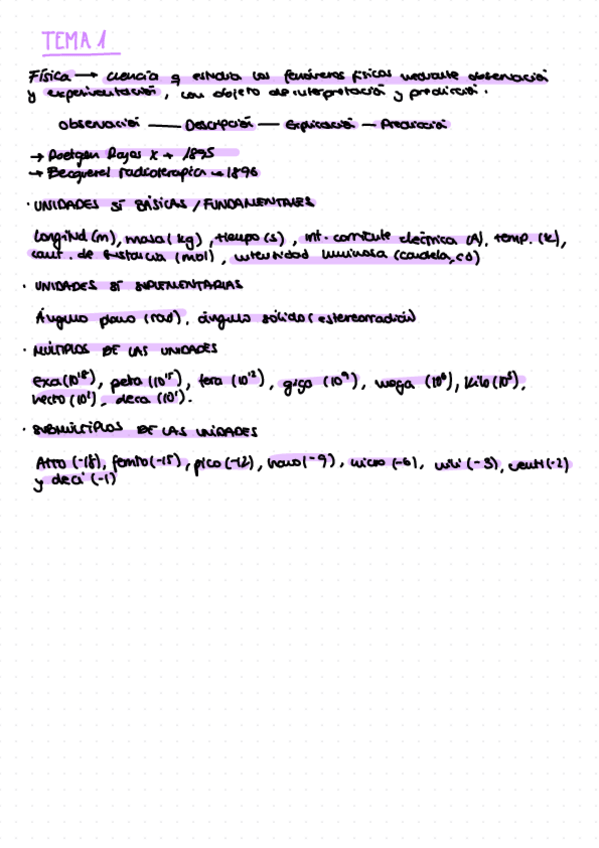 TEMA 1
Física → ciencia q estudia los fenómenos físicos mediante observación
y experimentación, con objeto de interpretación y predicción.
observación — Descripción — Explicación — Predicción
→ Roetgen Rayos X → 1895
→ Becquerel radioterapia → 1896
· UNIDADES SI BÁSICAS / FUNDAMENTALES
Longitud (m), masa (kg), tiempo (s), int. corriente eléctrica (A), temp. (K),
cant. de sustancia (mol), intensidad luminosa (candela, cd)
· UNIDADES SI SUPLEMENTARIAS
Ángulo plano (rad), ángulo sólido (estereorradián)
· MÚLTIPLOS DE LAS UNIDADES
exa (10¹⁸), peta (10¹⁵), tera (10¹²), giga (10⁹), mega (10⁶), kilo (10³),
hecto (10²), deca (10¹).
· SUBMÚLTIPLOS DE LAS UNIDADES
Atto (-18), femto (-15), pico (-12), nano (-9), micro (-6), mili (-3), centi (-2)
y deci (-1)